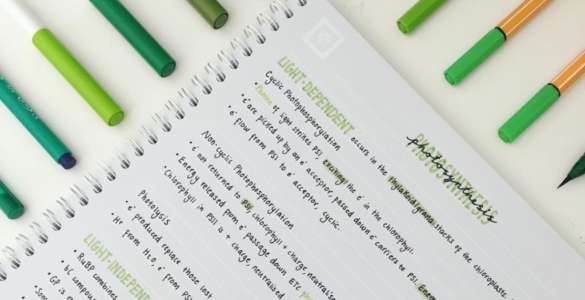 PHOTOSYNTHESIS
photosynthesis
LIGHT-DEPENDENT occurs in the thylakoid grana stacks of the chloroplasts
Cyclic Photophosphorylation
• Photon of light strikes PSI, exciting the é in the chlorophyll.
• é are picked up by an é acceptor, passed down é carriers to PSI.
• é flow from PSI to é acceptor cyclic.
Non-Cyclic Photophosphorylation
• é not returned to PSII, chlorophyll + charge, neutralised
• Energy released from é passage down ETC
• Chlorophyll in PSII is + charge, neutralised
Photolysis
• é produced replace those lost
• H+ from H₂O, é from PSI
LIGHT-INDEPENDENT
• RuBP combines
• 6C compound
• GP is